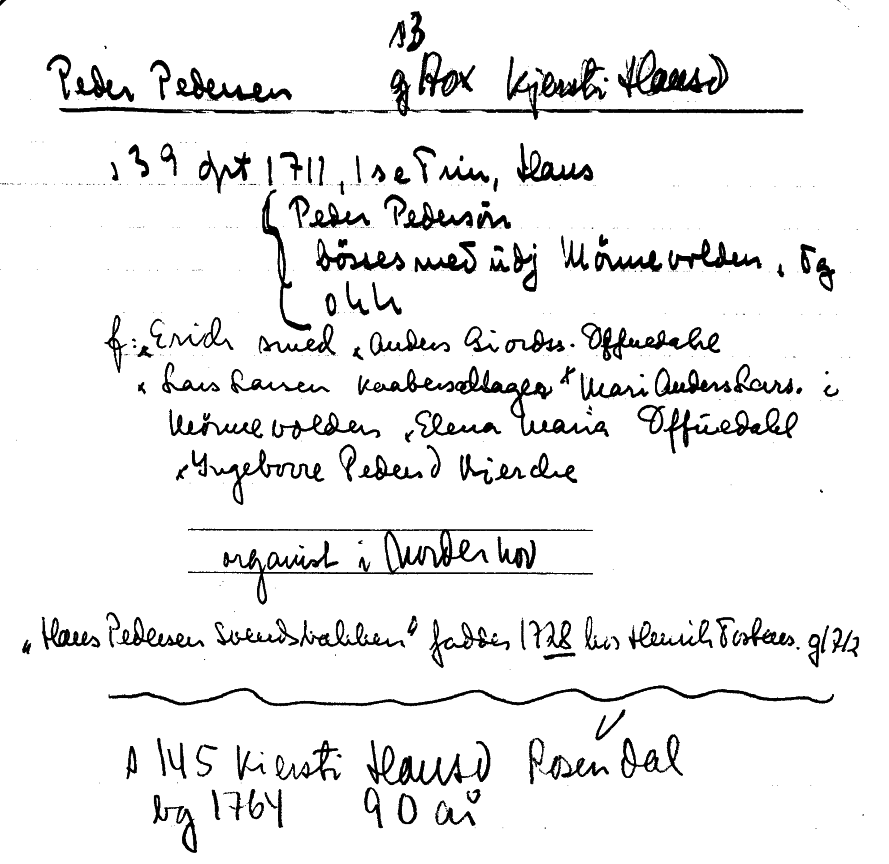 s 3
Peder Pedersen g Kjersti Hansd
s 39 dpt 1711, 1 s e Trin, Hans
Peder Pedersön
bösses med üdj Mörmevolden, Tg
o h h
f: x Erich smed x Anders Giordss. Offuedahl
x Lars Larsen Kaaberschlager x Mari Anders Lars. i
Mörmevolden x Elena Maria Offüedahl
x Ingeborre Pedersd Kierche
organist i Norderhov
"Hans Pedersen Svendsbakken" fadder 1728 hos Henrik Tostens. g1712
s 145 Kiersti Hansd Rosendal
bg 1764 90 år